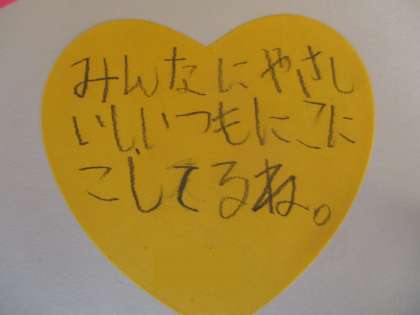 みんなにやさし
いしいつもにこに
こしてるね。